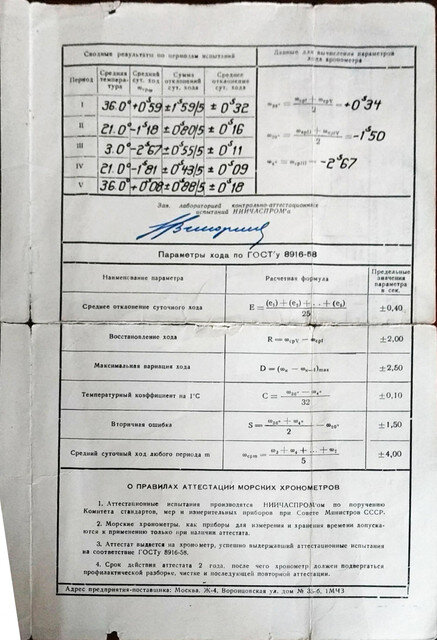 Сводные результаты по периодам испытаний
Данные для вычисления параметров хода хронометра
Период Средняя температура Средний сут. ход ωсрm Сумма отклонений сут. хода Среднее отклонение сут. хода
I 36.0° +0ˢ59 ±1ˢ59/5 ±0ˢ32
II 21.0° -1ˢ18 ±0ˢ80/5 ±0ˢ16
III 3.0° -2ˢ67 ±0ˢ55/5 ±0ˢ11
IV 21.0° -1ˢ81 ±0ˢ43/5 ±0ˢ09
V 36.0° +0ˢ08 ±0ˢ88/5 ±0ˢ18
ω₃₆° = (ωсрI + ωсрV) / 2 = +0ˢ34
= -1ˢ50
ω₄° = ωсрIII = -2ˢ67
Зав. лабораторией контрольно-аттестационных
испытаний НИИЧАСПРОМ'а
Параметры хода по ГОСТ'у 8916-58
Наименование параметра Расчетная формула Предельные значения параметра в сек.
Среднее отклонение суточного хода E = ((e₁) + (e₂) + . . + (e₅)) / 25 ±0,40
Восстановление хода R = ωсрV − ωсрI ±2,00
Максимальная вариация хода D = (ωₙ − ωₙ₋₁)max ±2,50
Температурный коэффициент на 1°C C = (ω₃₆° − ω₄°) / 32 ±0,10
Вторичная ошибка S = (ω₃₆° + ω₄°) / 2 − ω₂₀° ±1,50
Средний суточный ход любого периода m ±4,00
О ПРАВИЛАХ АТТЕСТАЦИИ МОРСКИХ ХРОНОМЕТРОВ
1. Аттестационные испытания производятся НИИЧАСПРОМ'ом по поручению
Комитета стандартов, мер и измерительных приборов при Совете Министров СССР.
2. Морские хронометры, как приборы для измерения и хранения времени допуска-
ются к применению только при наличии аттестата.
3. Аттестат выдается на хронометр, успешно выдержавший аттестационные испытания
на соответствие ГОСТу 8916-58.
4. Срок действия аттестата 2 года, после чего хронометр должен подвергаться
профилактической разборке, чистке и последующей повторной аттестации.
Адрес предприятия-поставщика: Москва, Ж-4, Воронцовская ул. дом № 35-б, 1МЧЗ